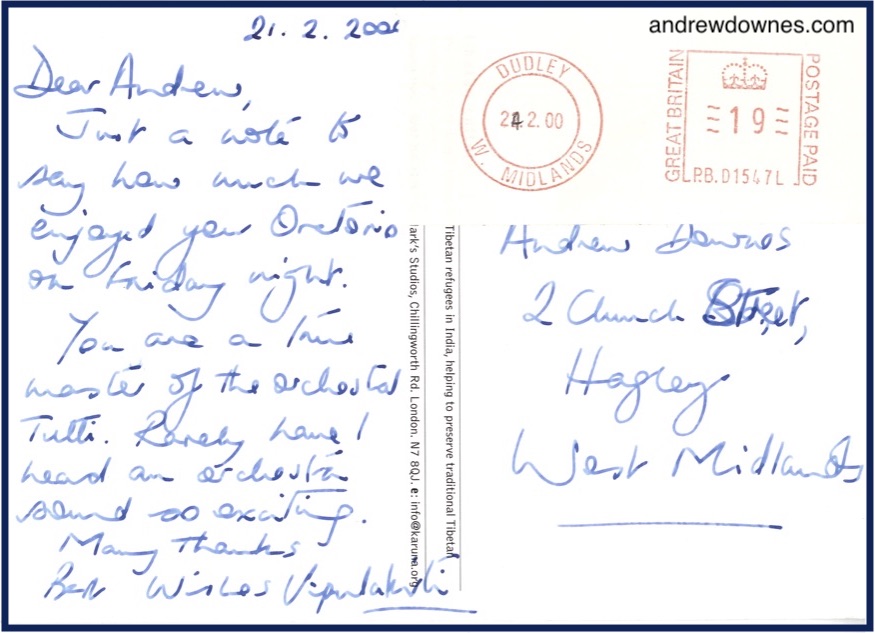 andrewdownes.com
21. 2. 2000
Dear Andrew,
Just a note to
say how much we
enjoyed your Oratorio
on Friday night.
You are a true
master of the orchestral
Tutti. Rarely have I
heard an orchestra
sound so exciting.
Many Thanks
Best Wishes Vipulakirti
DUDLEY
2.00
W. MIDLANDS
GREAT BRITAIN
19
POSTAGE PAID
P.B. D1547L
Tibetan refugees in India, helping to preserve traditional Tibetan
lark's Studios, Chillingworth Rd. London. N7 8QJ. e: info@karuna.org
Andrew Downes
2 Church Street,
Hagley
West Midlands